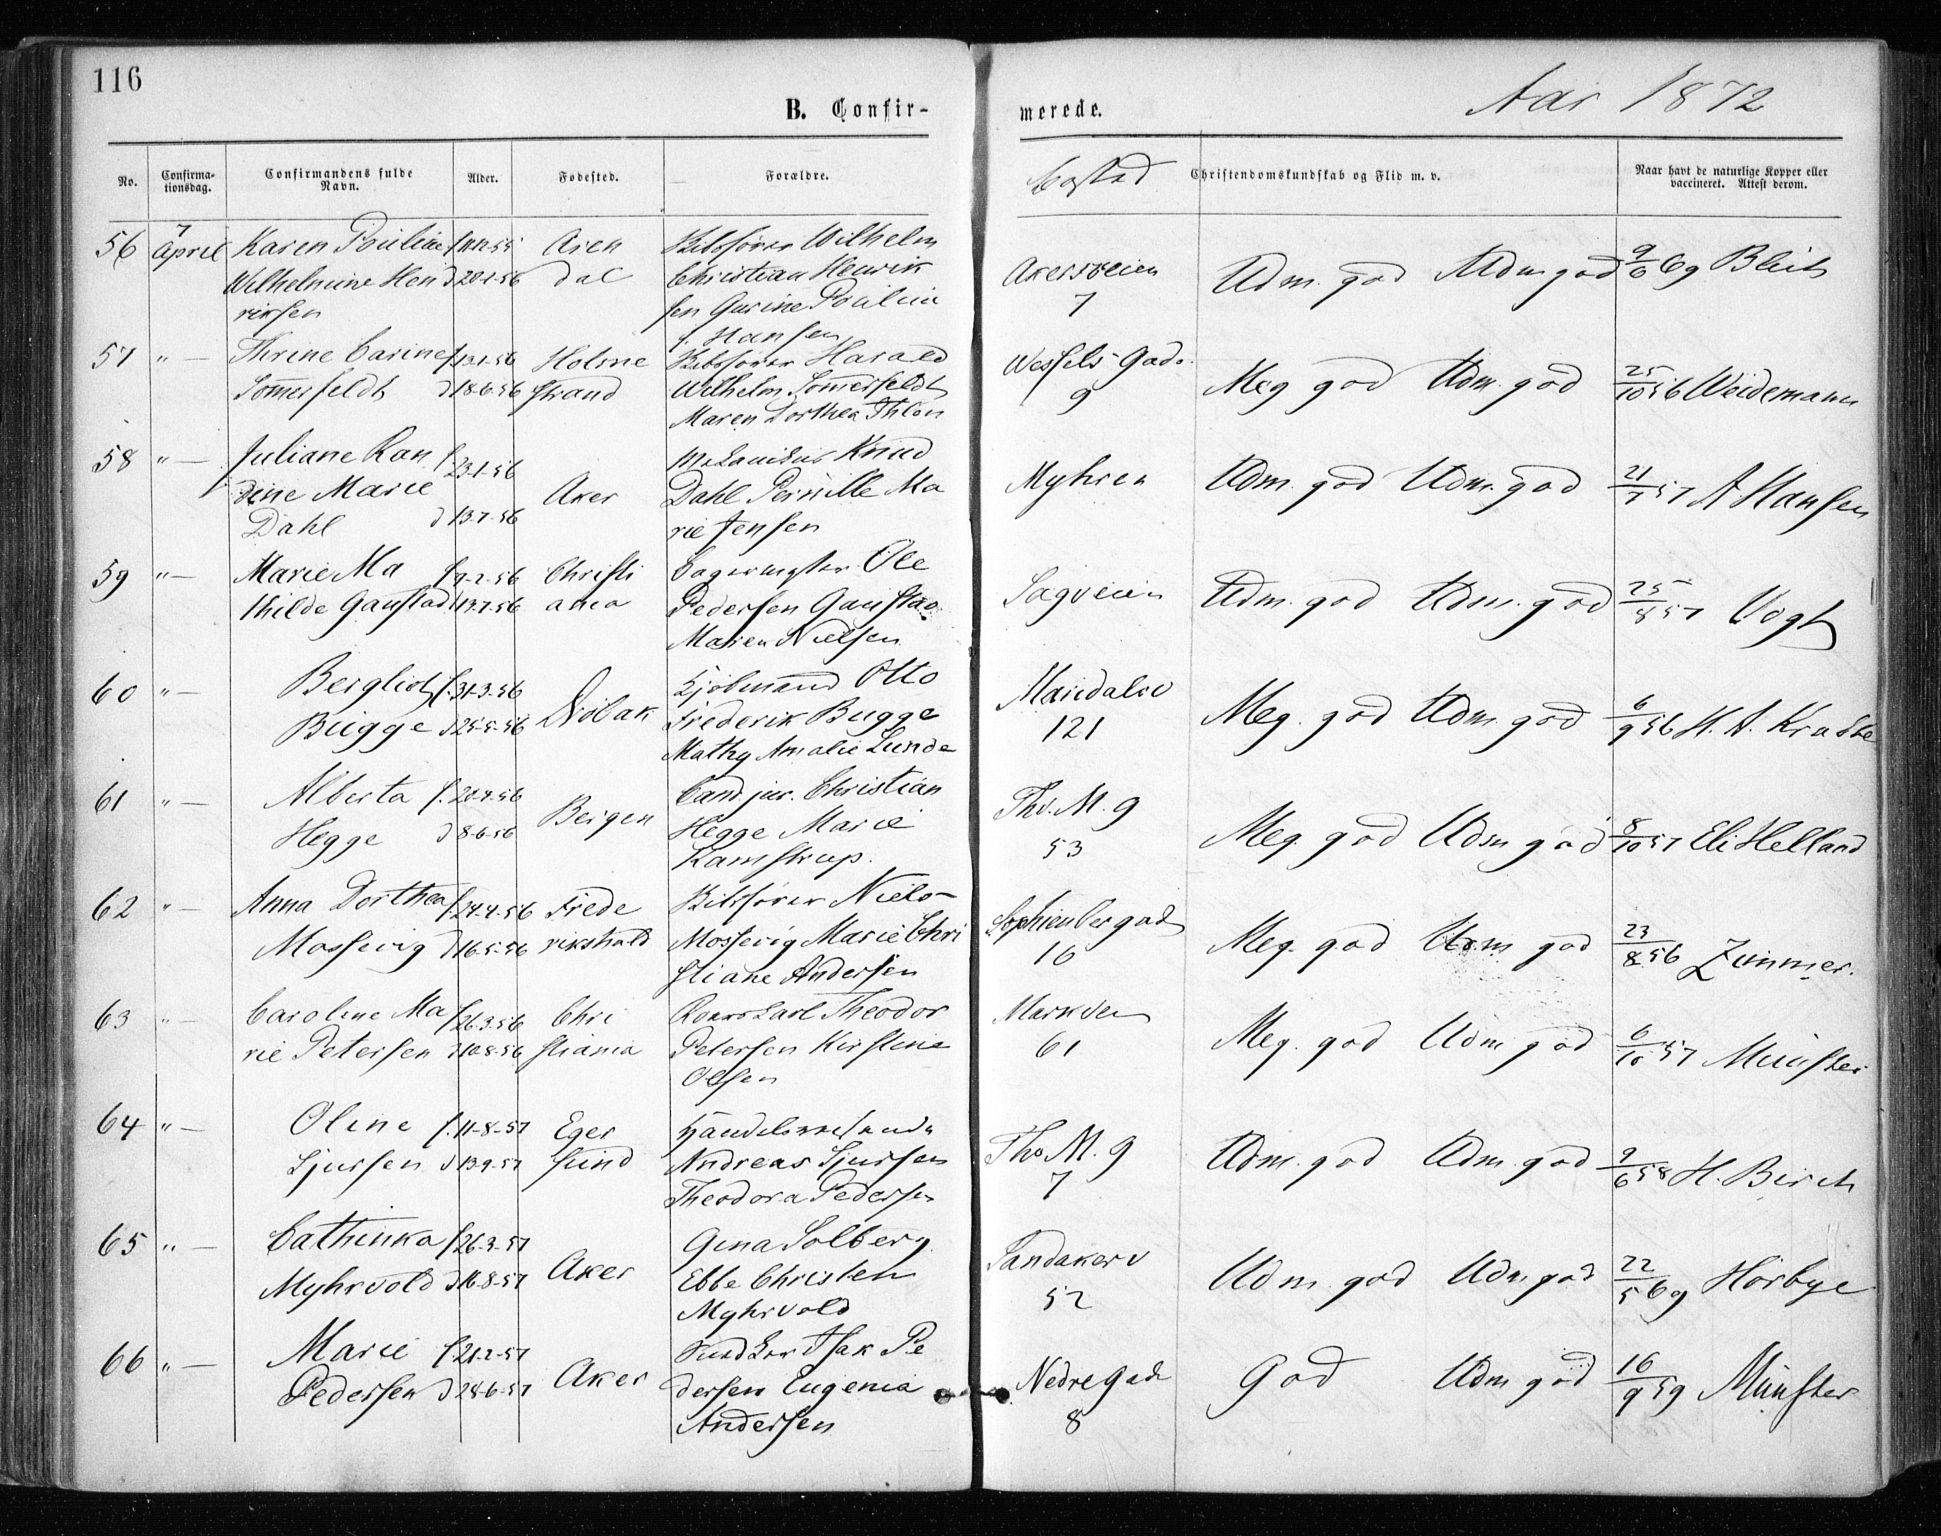 116
B. Confir-
merede.
Aar 1872
No.
Confirma-
tionsdag.
Confirmandens fulde
Navn.
Alder.
Fødested.
Forældre.
Bosted
Christendomskundskab og Flid m. v.
Naar havt de naturlige Kopper eller
vaccineret. Attest derom.
56 7 April Karen Pouline Aren Wilhelm
Wilhelmine Hen d 20-1-56 dal Christian Henrik Akersveien Udm. god Udm. god 9/6 69 Blich
riksen sen Gurine Pouline 7
f. Hansen
57 " — Thrine Carine f 13-1-56 Holme Harald Wessels Gade
Sommerfeldt d 18-6-56 strand Wilhelm Sommerfeldt 9 Meg god Udm. god 25/10 56 Weidemann
Maren Dorthea
58 " — Juliane Ran f 23-1-56 Knud
dine Marie Aker Dahl Pernille Ma Myhren Udm. god Udm. god 21/7 57 A Hansen
Dahl d 13-7-56 rie Jensen
59 " — Marie Ma f 9-2-56 Christi Bagermester Ole
thilde Gaustad 13-7-56 ania Pedersen Gaustad Sagveien Udm. god Udm. god 25/8 57 Vogt
Maren Nielsen
60 " — Bergliot f. 31-3-56 Kjøbmand Otto Maridalsv
Bugge d 25-5-56 Drøbak Frederik Bugge 121 Meg. god Udm. god 6/9 56 H. A. Krabbe
Mathy Amalie Lunde
61 " — Alberta f. 20-4-56 Cand jur. Christian Thv. M. g
Hegge d 8-6-56 Bergen Hegge Marie 53 Meg. god Udm god 8/10 57 Eli Helland
Kamstrup.
62 " — Anna Dorthea f. 24-4-56 Frede Niels Sophienberggad
Mossevig d 16-5-56 rikshald Mossevig Marie Chri 16 Meg. god Udm god 23/8 56 Zimmer.
stiane Andersen
63 " — Caroline Ma f 26-3-56 Chri Carl Theodor Markven
rie Petersen d 10-8-56 stiania Petersen Kirstine 61 Meg. god Udm god 6/10 57 Münster
Olsen
64 " — Oline f. 11-8-57 Eger Handelsreisende Tho M. g
Sjursen d 13-9-57 sund Andreas Sjursen 7 Udm. god Udm. god 9/6 58 H. Birch
Theodora Pedersen
65 " — Cathinka f 26-3-57 Gina Solberg Sandakerv
Myhrvold d 16-8-57 Aker Ebbe Christen 52 Udm. god Udm god 22/5 69 Hørbye
Myhrvold
66 " — Marie f. 21-2-57 Isak Pe
Pedersen d 28-6-57 Aker dersen Eugenia Nedregade God Udm god 16/9 59 Münster
Andersen 8